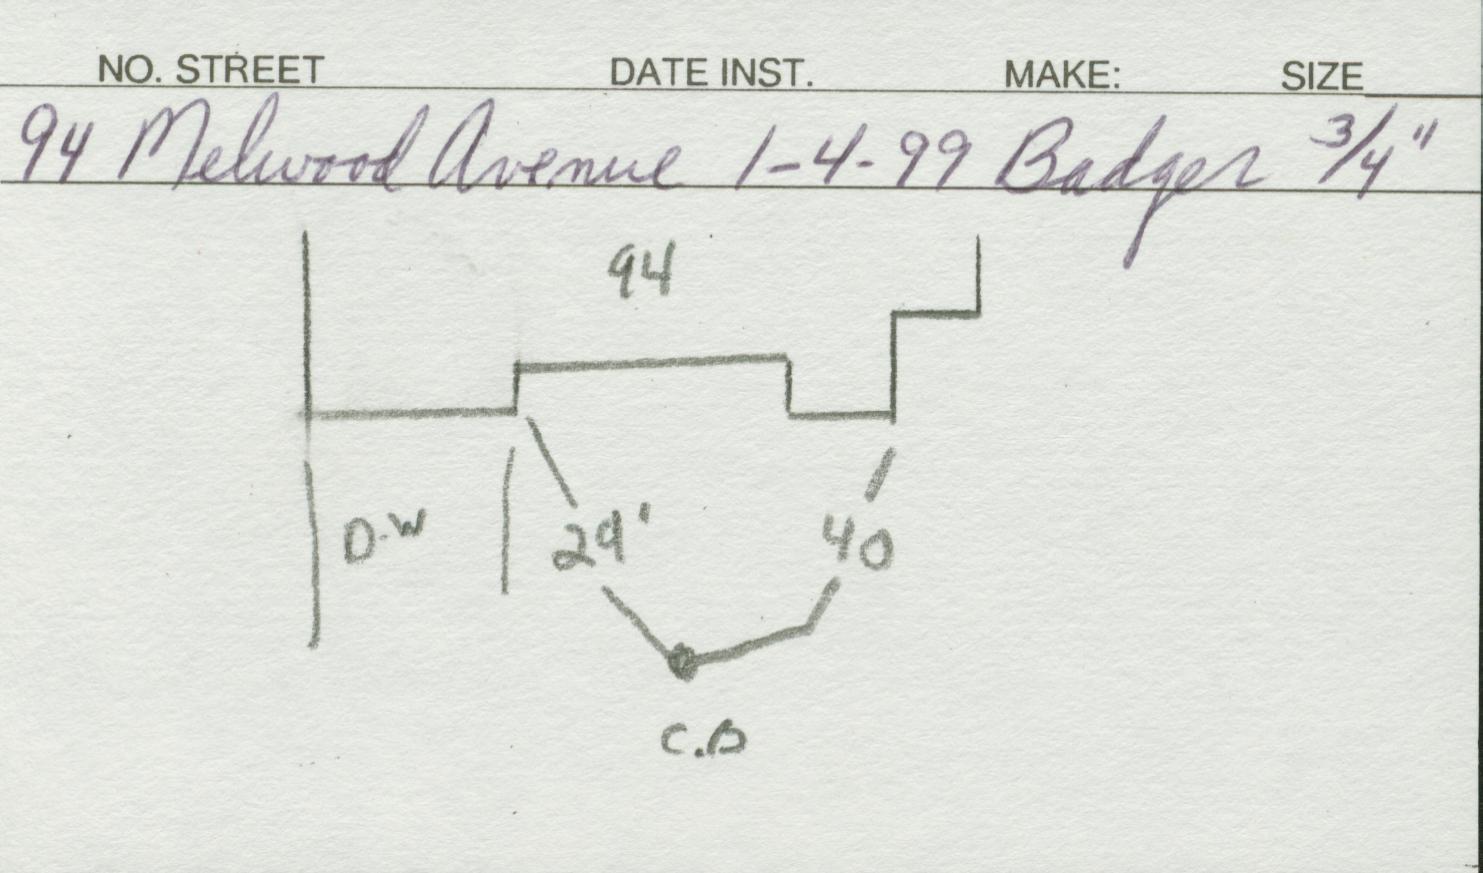 NO. STREET DATE INST. MAKE: SIZE
94 Melwood Avenue 1-4-99 Badger 3/4"
94
D-W 29' 40
C.B